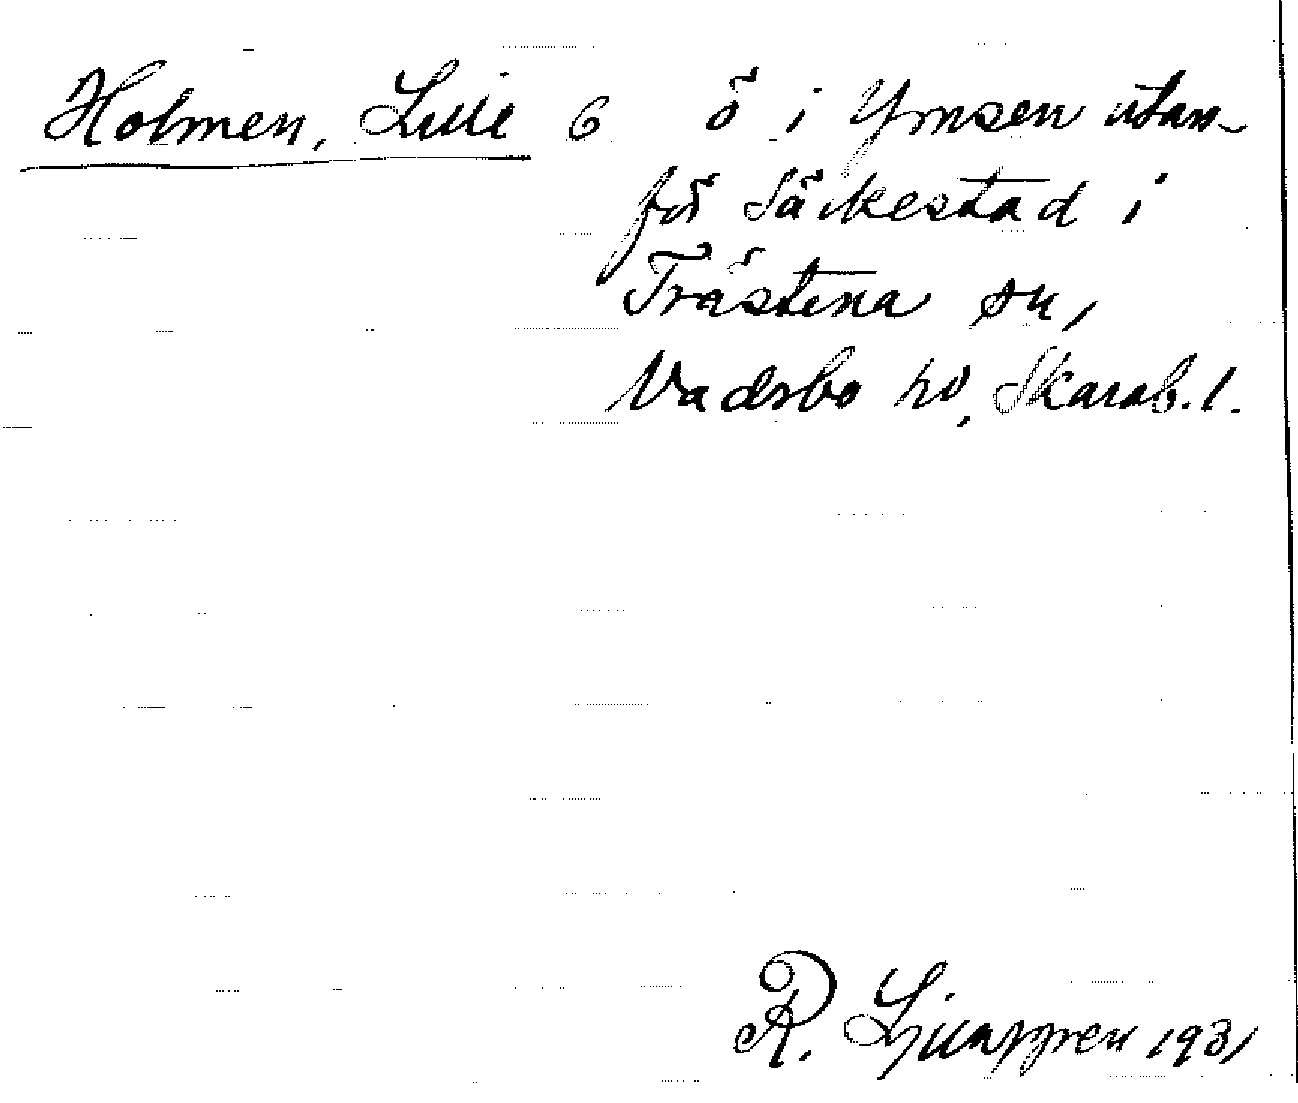 Holmen, Lille 6 ö i Ymsen utan-
för Säckestad i
Trästena sn,
Vadsbo hd, Skarab. l.
R. Ljunggren 1931